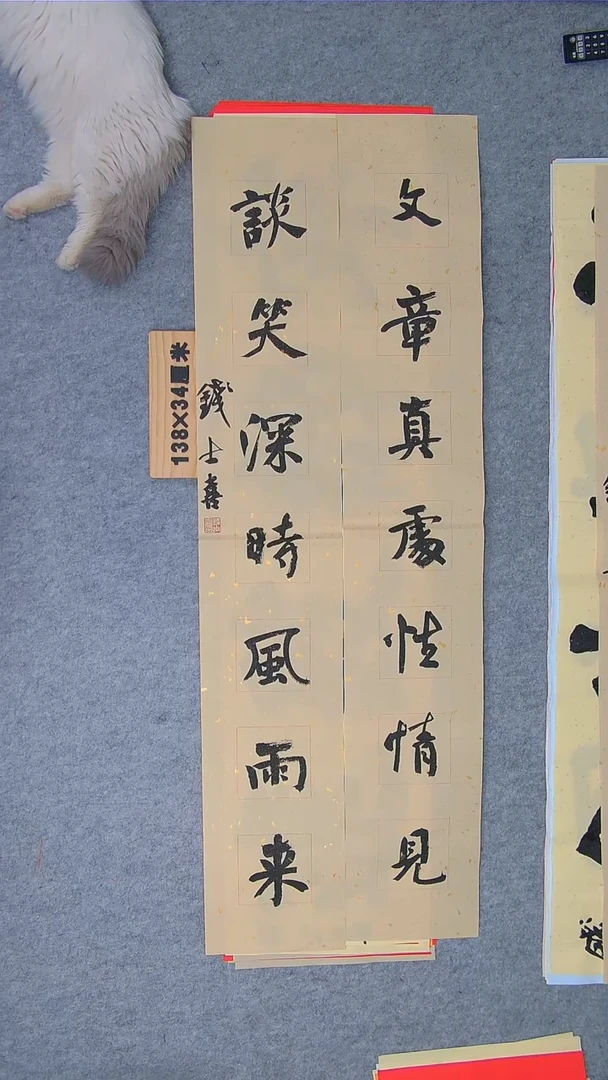 文章真處性情見
談笑深時風雨来
錢士喜
138×34厘米